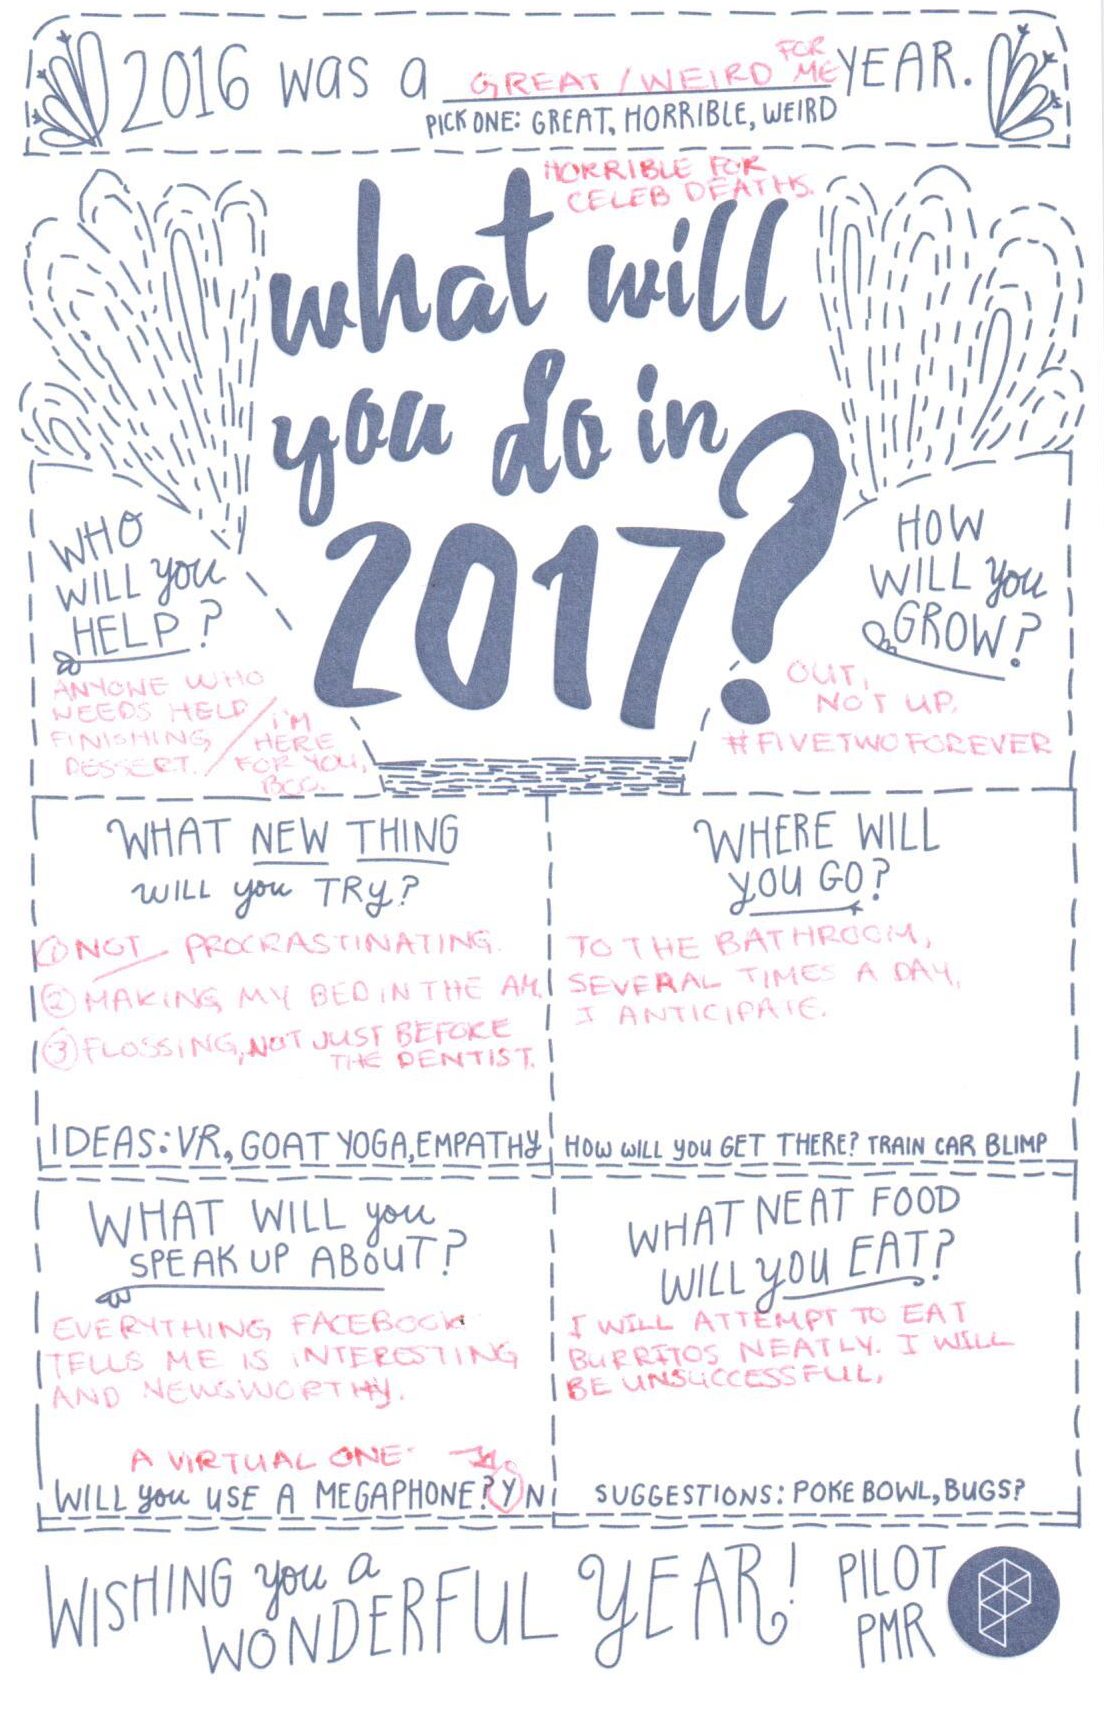 2016 was a GREAT / WEIRD FOR ME YEAR.
PICK ONE: GREAT, HORRIBLE, WEIRD
HORRIBLE FOR
CELEB DEATHS.
what will
you do in
2017?
WHO
WILL you
HELP?
ANYONE WHO
NEEDS HELP
FINISHING
DESSERT. /
I'M
HERE
FOR YOU,
BCC.
HOW
WILL you
GROW?
OUT,
NOT UP.
#FIVETWOFOREVER
WHAT NEW THING
WILL you TRY?
① NOT PROCRASTINATING.
② MAKING MY BED IN THE AM.
③ FLOSSING, NOT JUST BEFORE
THE DENTIST.
IDEAS: VR, GOAT YOGA, EMPATHY
WHERE WILL
YOU GO?
TO THE BATHROOM,
SEVERAL TIMES A DAY,
I ANTICIPATE.
HOW WILL you GET THERE? TRAIN CAR BLIMP
WHAT WILL you
SPEAK UP ABOUT?
EVERYTHING FACEBOOK
TELLS ME IS INTERESTING
AND NEWSWORTHY.
A VIRTUAL ONE.
WILL you USE A MEGAPHONE? Y N
WHAT NEAT FOOD
WILL you EAT?
I WILL ATTEMPT TO EAT
BURRITOS NEATLY. I WILL
BE UNSUCCESSFUL.
SUGGESTIONS: POKE BOWL, BUGS?
WISHING you a
WONDERFUL YEAR!
PILOT
PMR